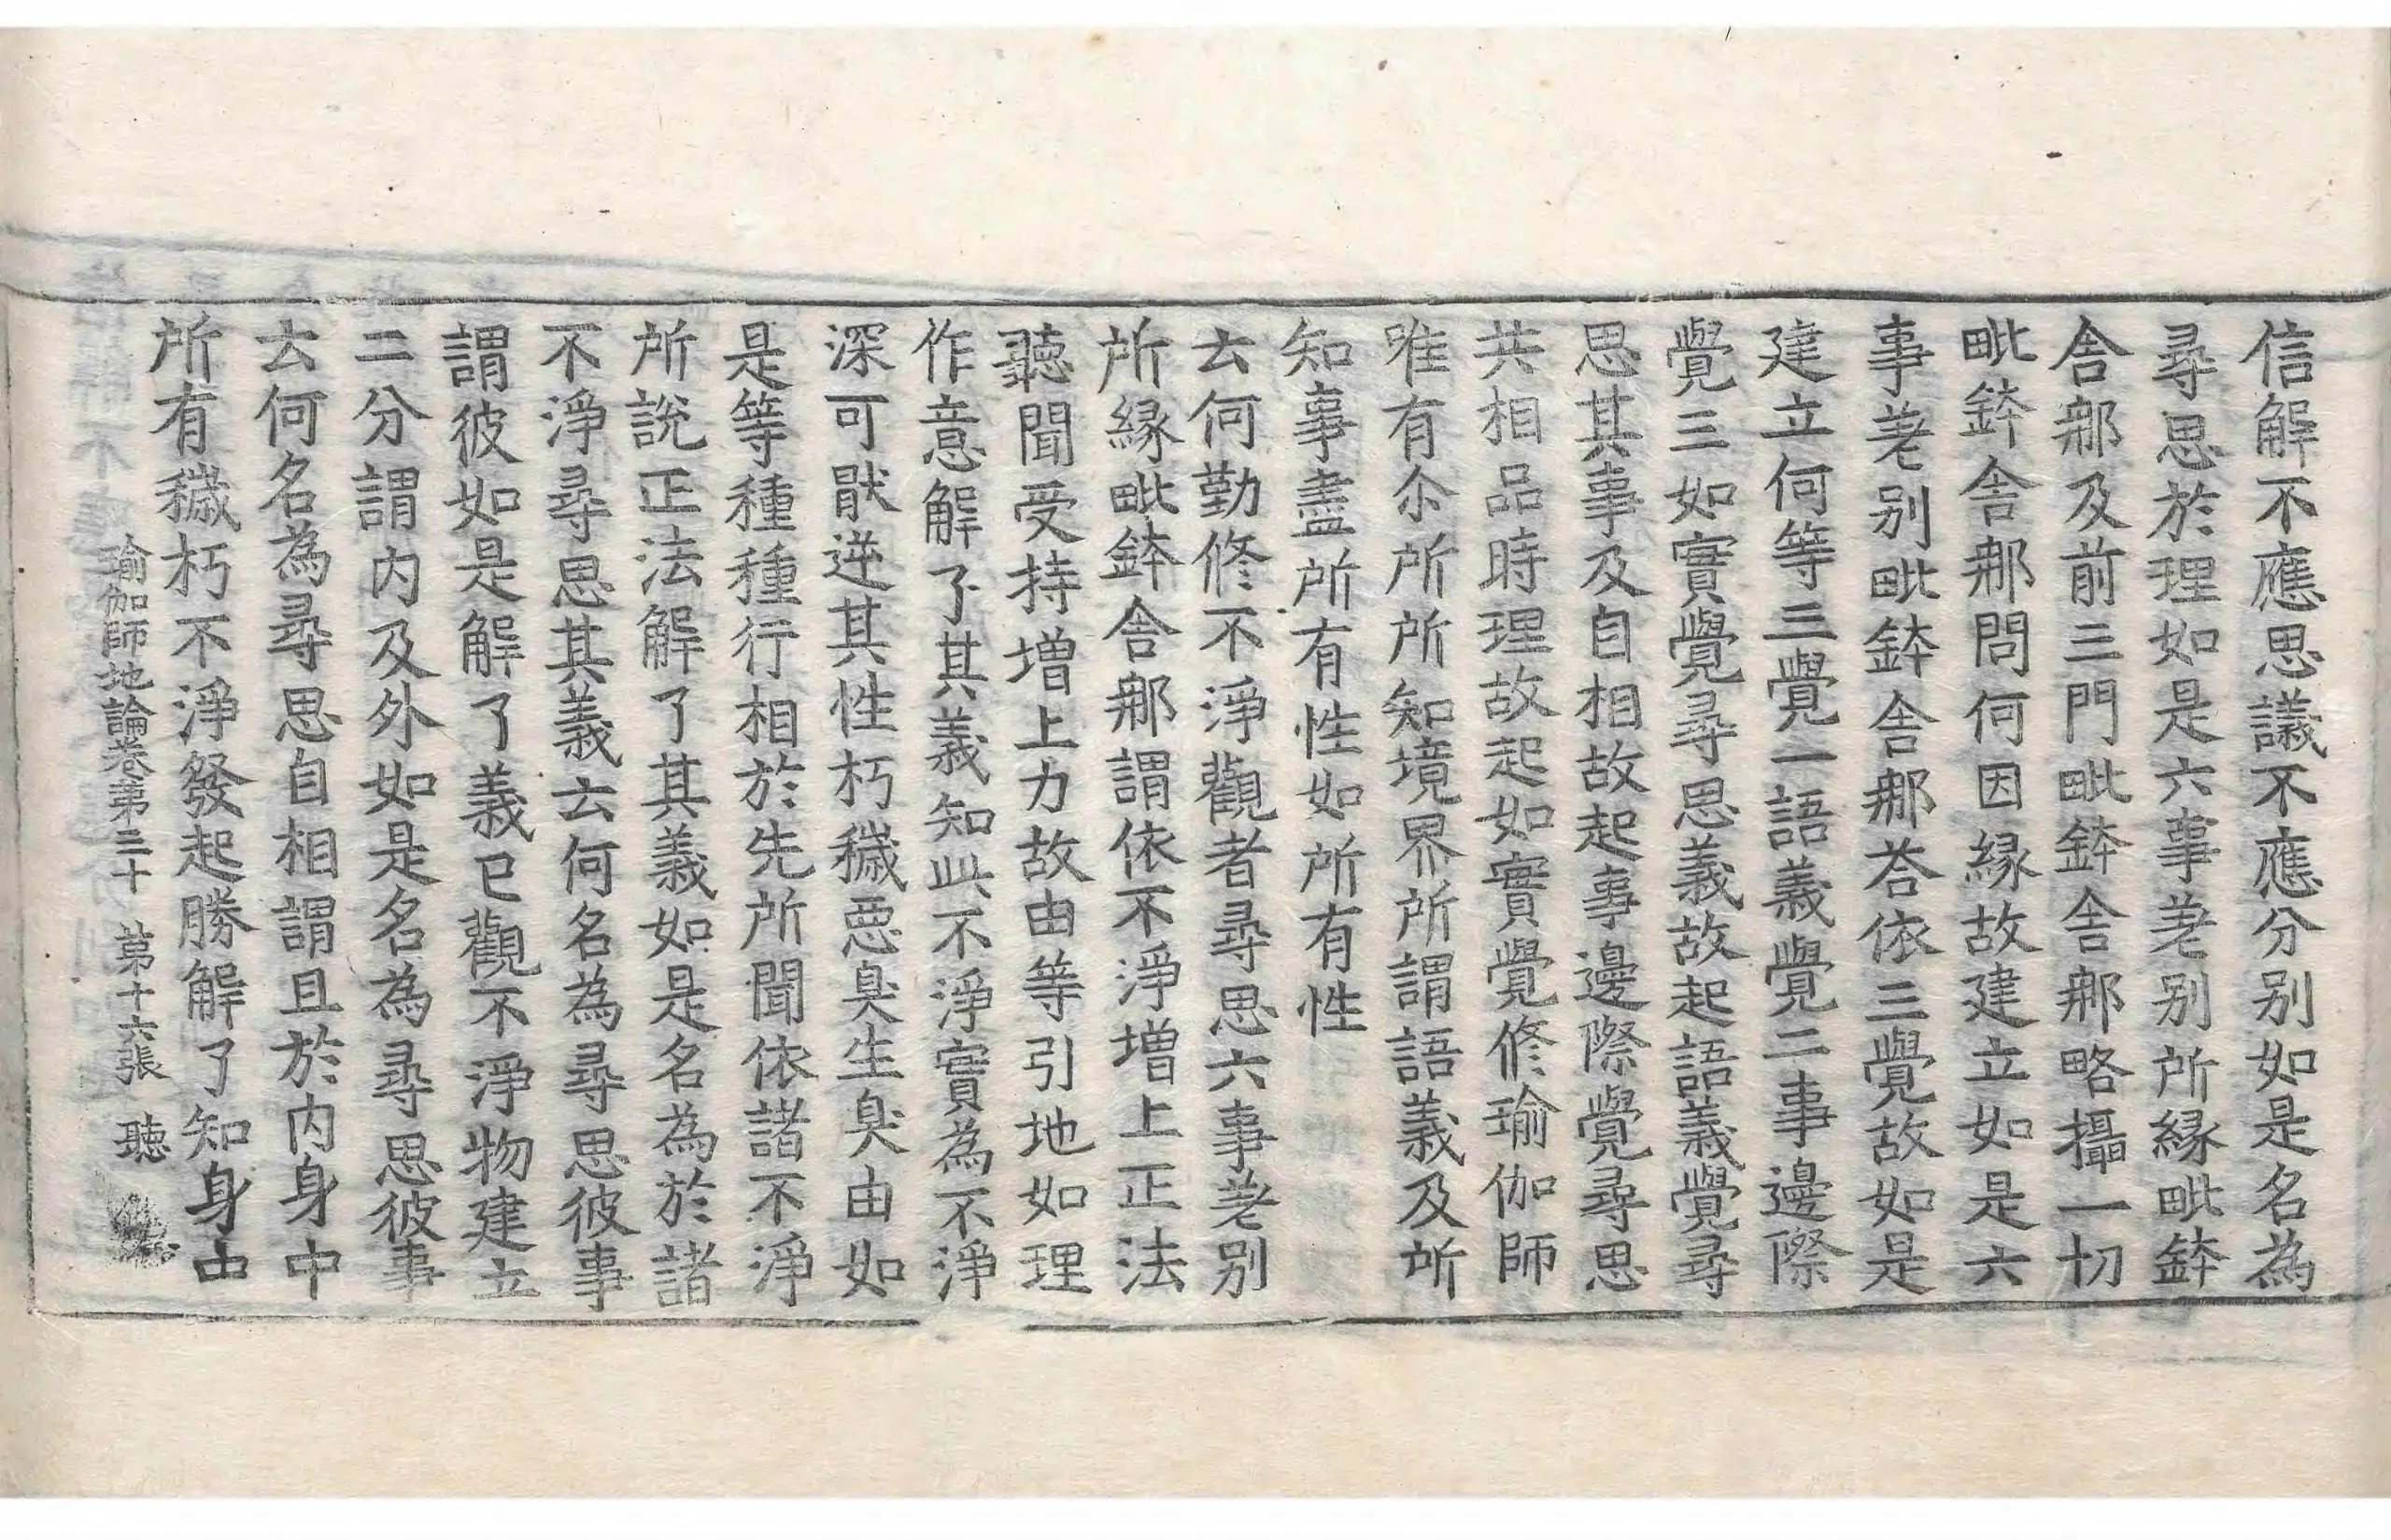 信解不應思議不應分別如是名為
尋思於理如是六事差別所緣毗鉢
舍那及前三門毗鉢舍那略攝一切
毗鉢舍那問何因緣故建立如是六
事差別毗鉢舍那荅依三覺故如是
建立何等三覺一語義覺二事邊際
覺三如實覺尋思義故起語義覺尋
思其事及自相故起事邊際覺尋思
共相品時理故起如實覺修瑜伽師
唯有尒所所知境界所謂語義及所
知事盡所有性如所有性
云何勤修不淨觀者尋思六事差別
所緣毗鉢舍那謂依不淨增上正法
聽聞受持增上力故由等引地如理
作意解了其義知此不淨實為不淨
深可猒逆其性朽穢惡臭生臭由如
是等種種行相於先所聞依諸不淨
所說正法解了其義如是名為於諸
不淨尋思其義云何名為尋思彼事
謂彼如是解了義已觀不淨物建立
二分謂内及外如是名為尋思彼事
云何名為尋思自相謂且於内身中
所有穢朽不淨發起勝解了知身中
瑜伽師地論卷第三十　第十六張　聽